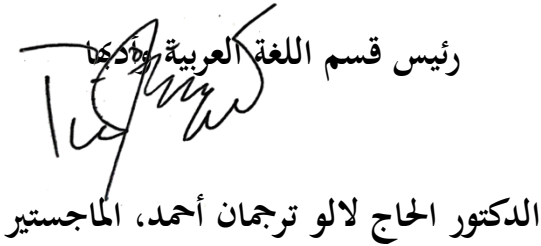 رئيس قسم اللغة العربية وأدبها
الدكتور الحاج لالو ترجمان أحمد، الماجستير